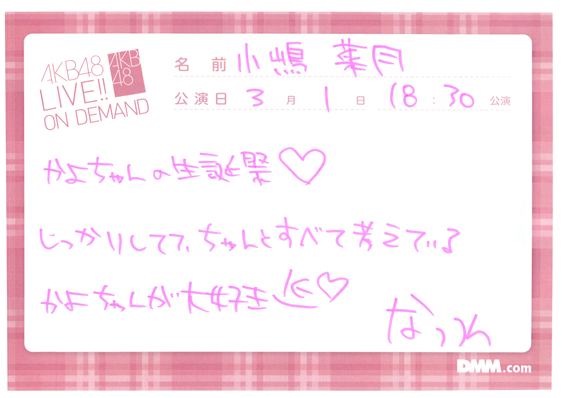 AKB48
LIVE!!
ON DEMAND
AKB
48
名前 小嶋 菜月
公演日 3月1日 18:30公演
かよちゃんの生誕祭♡
しっかりしてて、ちゃんとすべて考えている
かよちゃんが大好き♡
なつ
DMM.com